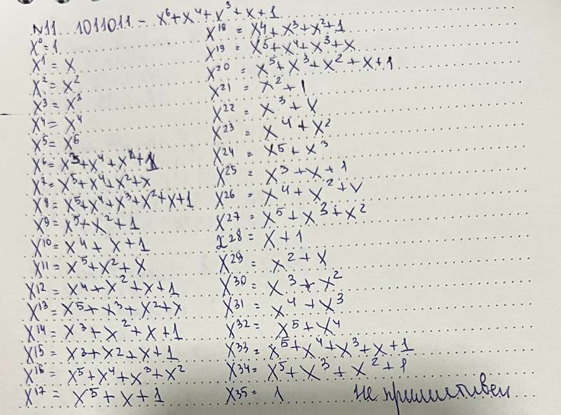 N11. 1011011 - x⁶+x⁴+x³+x+1
x⁰=1
x¹ = x
x² = x²
x³ = x³
x⁴ = x⁴
x⁵ = x⁵
x⁶ = x³+x⁴+x²+1
x⁷ = x⁵+x⁴+x²+x
x⁸ = x⁵+x⁴+x³+x²+x+1
x⁹ = x⁵+x²+1
x¹⁰ = x⁴+x+1
x¹¹ = x⁵+x²+x
x¹² = x⁴+x²+x+1
x¹³ = x⁵+x³+x²+x
x¹⁴ = x³+x²+x+1
x¹⁵ = x³+x²+x+1
x¹⁶ = x⁵+x⁴+x³+x²
x¹⁷ = x⁵+x+1
x¹⁸ = x⁴+x³+x²+1
x¹⁹ = x⁵+x⁴+x³+x
x²⁰ = x⁵+x³+x²+x+1
x²¹ = x²+1
x²² = x³+x
x²³ = x⁴+x²
x²⁴ = x⁵+x³
x²⁵ = x³+x+1
x²⁶ = x⁴+x²+x
x²⁷ = x⁵+x³+x²
x²⁸ = x+1
x²⁹ = x²+x
x³⁰ = x³+x²
x³¹ = x⁴+x³
x³² = x⁵+x⁴
x³³ = x⁵+x⁴+x³+x+1
x³⁴ = x⁵+x³+x²+1
x³⁵ = 1 не примитивен